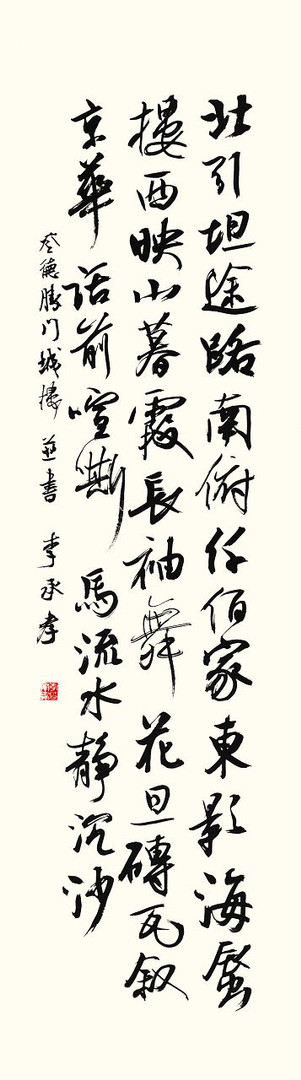 北引坦途路南俯仟佰家東影海蜃
樓西映山暮霞長袖舞花旦磚瓦叙
京華話前喧嘶馬流水靜沉沙
登德勝門城樓並書 李承孝